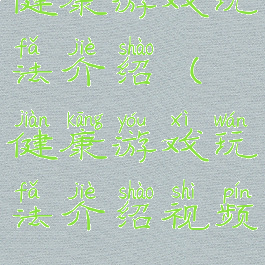 健康游戏玩
fǎ jiè shào
法介绍（
jiàn kāng yóu xì wán
健康游戏玩
fǎ jiè shào shì pín
法介绍视频